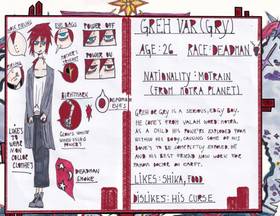 GREH VAR (GRY)
AGE: 26 RACE: DEADMAN
NATIONALITY: MOTRAIN
(FROM MOTRA PLANET)
GREH OR GRY IS A SERIOUS, EDGY BOY.
HE COMES FROM VALAH WORLD: MOTRA.
AS A CHILD HIS POWERS EXPLODED FROM
WITHIN HIS BODY, CAUSING SOME OF HIS
BONES TO BE COMPLETLY EXPOSED. HE
AND HIS BEST FRIEND NOW WORK FOR
DOCTOR ON EARTH.
LIKES: SHIKA, FOOD
DISLIKES: HIS CURSE.
EYE BAGS
POWER OFF
POWER ON
PIERCING
BIRTHMARK
DEADMAN
EYES
GLOWS WHITE
WHEN USING
POWERS
LIKES
TO
WEAR A
NON
COLOR
CLOTHES
DEADMAN
SMOKE